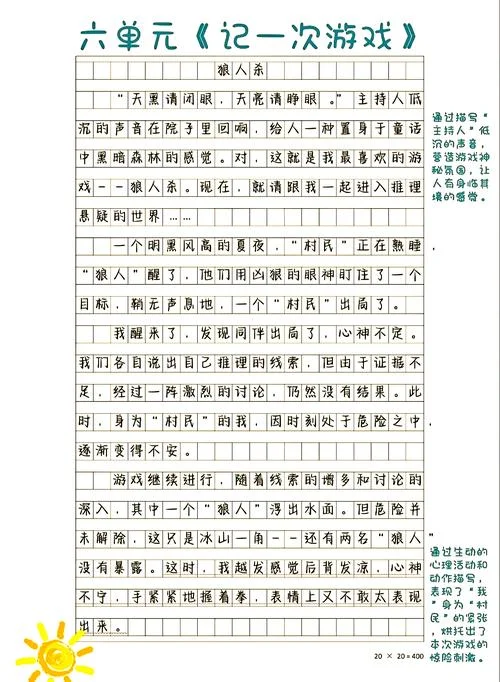 六单元《记一次游戏》
狼人杀
“天黑请闭眼，天亮请睁眼。”主持人低
沉的声音在院子里回响，给人一种置身于童话
中黑暗森林的感觉。对，这就是我最喜欢的游
戏--狼人杀。现在，就请跟我一起进入推理
悬疑的世界……
一个明黑风高的夏夜，“村民”正在熟睡，
“狼人”醒了，他们用凶狠的眼神盯住了一个
目标，鞘无声息地，一个“村民”出局了。
我醒来了，发现同伴出局了，心神不定。
我们各自说出自己推理的线索，但由于证据不
足，经过一阵激烈的讨论，仍然没有结果。此
时，身为“村民”的我，因时刻处于危险之中，
逐渐变得不安。
游戏继续进行，随着线索的增多和讨论的
深入，其中一个“狼人”浮出水面。但危险并
未解除，这只是冰山一角--还有两名“狼人”
没有暴露。这时，我越发感觉后背发凉，心神
不宁，手紧紧地握着拳，表情上又不敢太表现
出来。
20 × 20=400
通过描写“
主持人”低
沉的声音，
营造游戏神
秘氛围，让
人有身临其
境的感觉。
通过生动的
心理活动和
动作描写，
表现了“我
”身为“村
民”的紧张，
烘托出了
本次游戏的
惊险刺激。